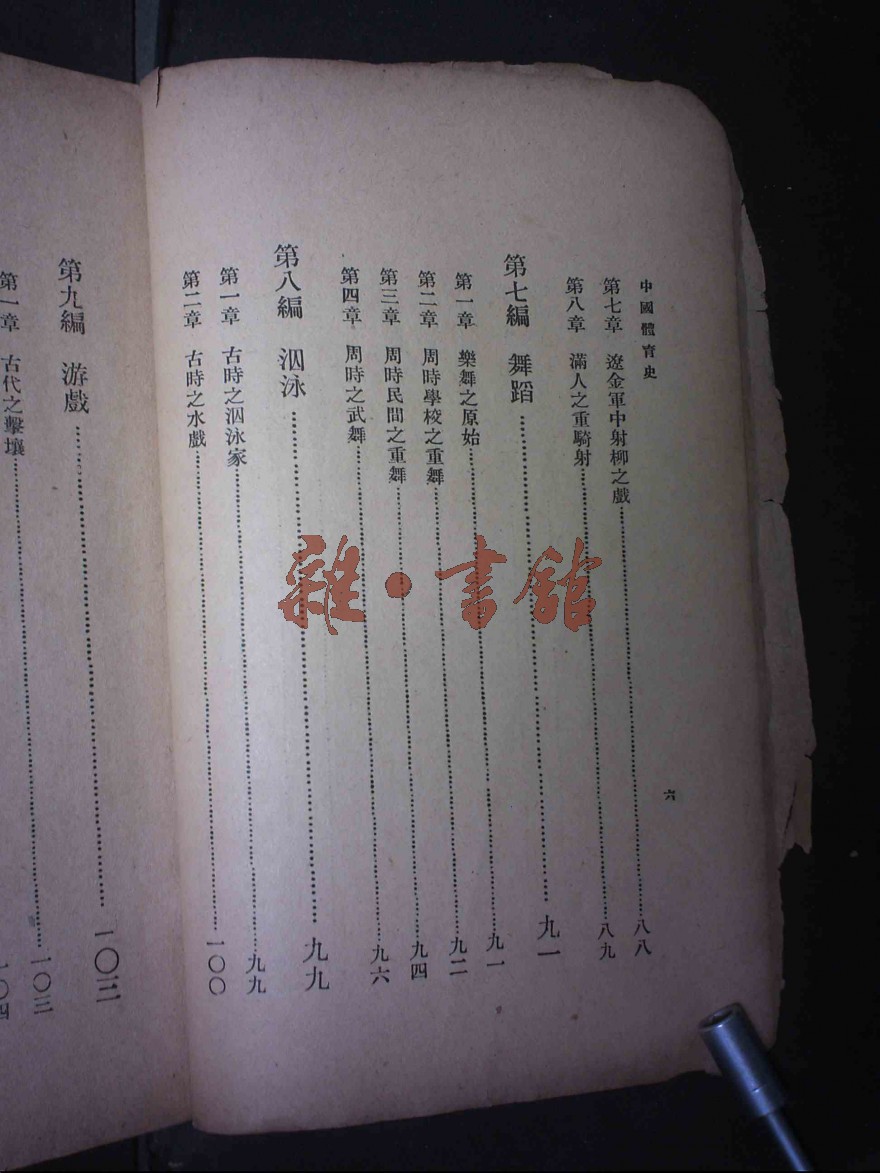 中國體育史
六
第七章　遼金軍中射柳之戲……八八
第八章　滿人之重騎射……八九
第七編　舞蹈……九一
第一章　樂舞之原始……九一
第二章　周時學校之重舞……九二
第三章　周時民間之重舞……九四
第四章　周時之武舞……九六
第八編　泅泳……九九
第一章　古時之泅泳家……九九
第二章　古時之水戲……一〇〇
第九編　游戲……一〇三
第一章　古代之擊壤……一〇三
一〇四
雜·書館